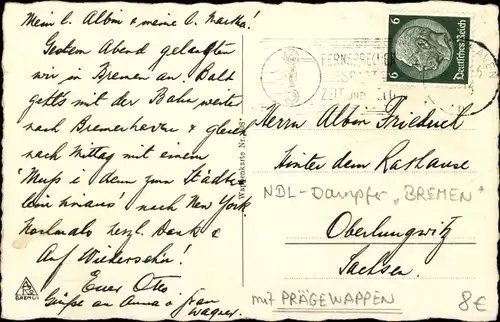 Mein l. Albin & meine l. Martha!
Gestern Abend gelangten
wir in Bremen an. Bald
gehts mit der Bahn weiter
nach Bremerhaven & gleich
nach Mittag mit einem
"Muss i denn zum Städtle
hinaus" nach New York.
Nochmals herzl. Dank &
Auf Wiedersehn!
Euer Otto
Grüße an Anna & Frau
Wagner.
BREMEN
Wappenkarte Nr.
FERNSPRECHER
SPART
ZEIT UND GELD
6 Deutsches Reich 6
Herrn Albin Friedrich
Hinter dem Rathause
NDL-Dampfer „BREMEN"
Oberlungwitz
Sachsen.
mit PRÄGEWAPPEN
8€